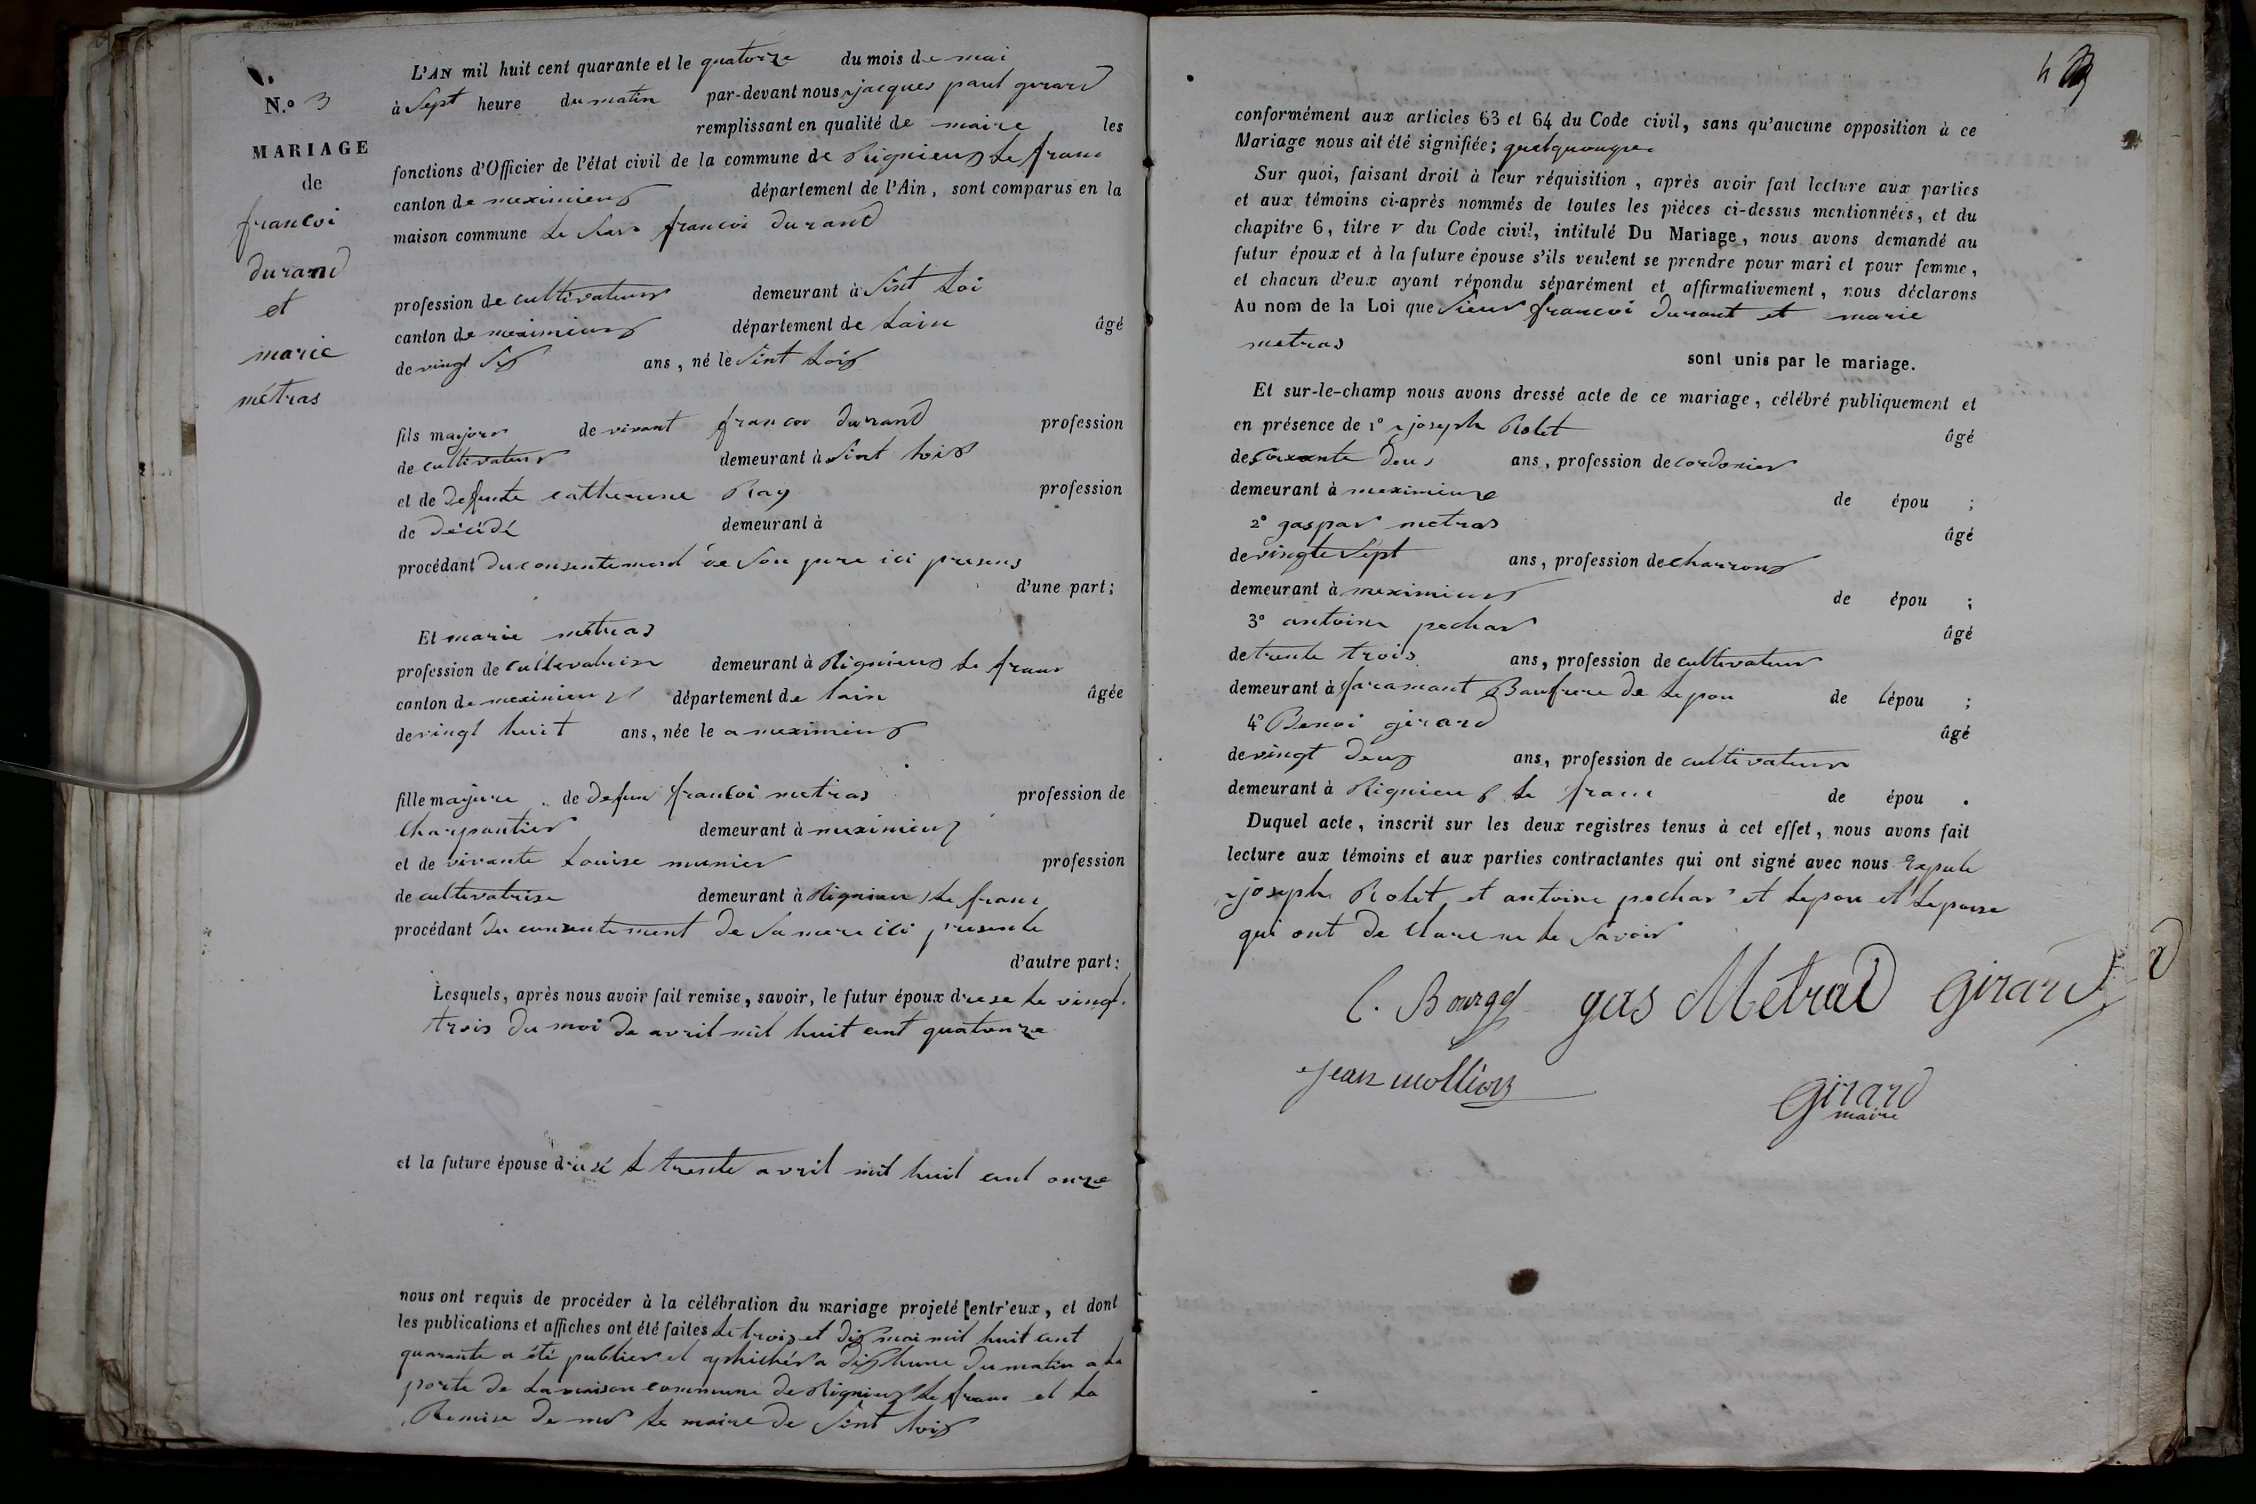 N.º 3
MARIAGE
de
francoi
durand
et
marie
métras
L'AN mil huit cent quarante et le quatorze du mois de mai
à Sept heure du matin par-devant nous jacques paul girard
remplissant en qualité de maire les
fonctions d'Officier de l'état civil de la commune de Rignieux le franc
canton de meximieux département de l'Ain, sont comparus en la
maison commune le francoi durand
profession de cultivateur demeurant à Sint Loi
canton de meximieux département de Lain âgé
de vingt Six ans, né le Sint Loix
fils majeur de vivant francoi durand profession
de cultivateur demeurant à Sint Loix
et de defunte catherine Ray profession
de décédé demeurant à
procédant du consentement de Son pere ici presens
d'une part;
Et marie métras
profession de cultivatrise demeurant à Rignieux le franc
canton de meximieux département de lain âgée
de vingt huit ans, née le a meximieux
fille majeure de defun francoi metras profession de
Charpantier demeurant à meximieux
et de vivante Louise munier profession
de cultivatrise demeurant à Rignieux le franc
procédant du consentement de Sa mere ici presente
d'autre part:
Lesquels, après nous avoir fait remise, savoir, le futur époux le vingt
trois du moi de avril mil huit cent quatorze
et la future épouse le trente avril mil huit cent onze
nous ont requis de procéder à la célébration du mariage projeté entr'eux, et dont
les publications et affiches ont été faites le trois et dix mai mil huit cent
quarante a été publier et a dix heure du matin a la
porte de la maison commune de Rignieux le franc et la
Remise de mr le maire de Sint Loix
conformément aux articles 63 et 64 du Code civil, sans qu'aucune opposition à ce
Mariage nous ait été signifiée;
Sur quoi, faisant droit à leur réquisition, après avoir fait lecture aux parties
et aux témoins ci-après nommés de toutes les pièces ci-dessus mentionnées, et du
chapitre 6, titre v du Code civil, intitulé Du Mariage, nous avons demandé au
futur époux et à la future épouse s'ils veulent se prendre pour mari et pour femme,
et chacun d'eux ayant répondu séparément et affirmativement, nous déclarons
Au nom de la Loi que Sieur francoi durant et marie
metras
sont unis par le mariage.
Et sur-le-champ nous avons dressé acte de ce mariage, célébré publiquement et
en présence de 1º joseph Rolet âgé
de soixante deux ans, profession de cordonier
demeurant à meximieux de épou ;
2º gaspar metras âgé
de vingte Sept ans, profession de charron
demeurant à meximieux de épou ;
3º antoine pechar âgé
de trente trois ans, profession de cultivateur
demeurant à faramant Baufrere de Lepou de lépou ;
4º Benoi girard âgé
de vingt deux ans, profession de cultivateur
demeurant à Rignieux le franc de épou .
Duquel acte, inscrit sur les deux registres tenus à cet effet, nous avons fait
lecture aux témoins et aux parties contractantes qui ont signé avec nous
joseph Rolet et antoine pechar et Lepou et Lepouse
qui ont de Clare ne le Savoir
gas Métrad Girard
Jean mollion
Girard
maire